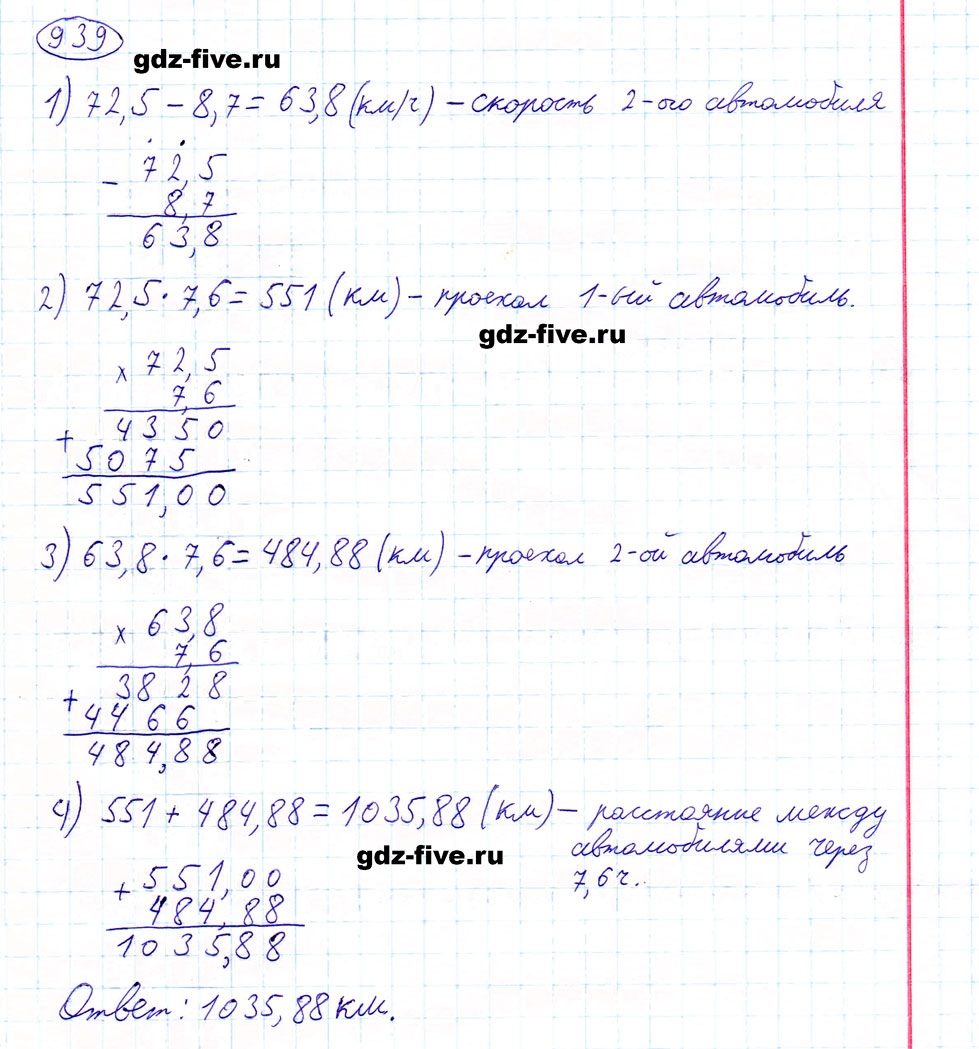 939
gdz-five.ru
1) 72,5 - 8,7 = 63,8 (км/ч) - скорость 2-ого автомобиля
- 72,5
8,7
63,8
2) 72,5 · 7,6 = 551 (км) - проехал 1-ый автомобиль.
gdz-five.ru
x 72,5
7,6
+ 4350
5075
551,00
3) 63,8 · 7,6 = 484,88 (км) - проехал 2-ой автомобиль
x 63,8
7,6
+ 3828
4466
484,88
4) 551 + 484,88 = 1035,88 (км) - расстояние между
автомобилями через
7,6 ч.
gdz-five.ru
+ 551,00
484,88
1035,88
Ответ: 1035,88 км.